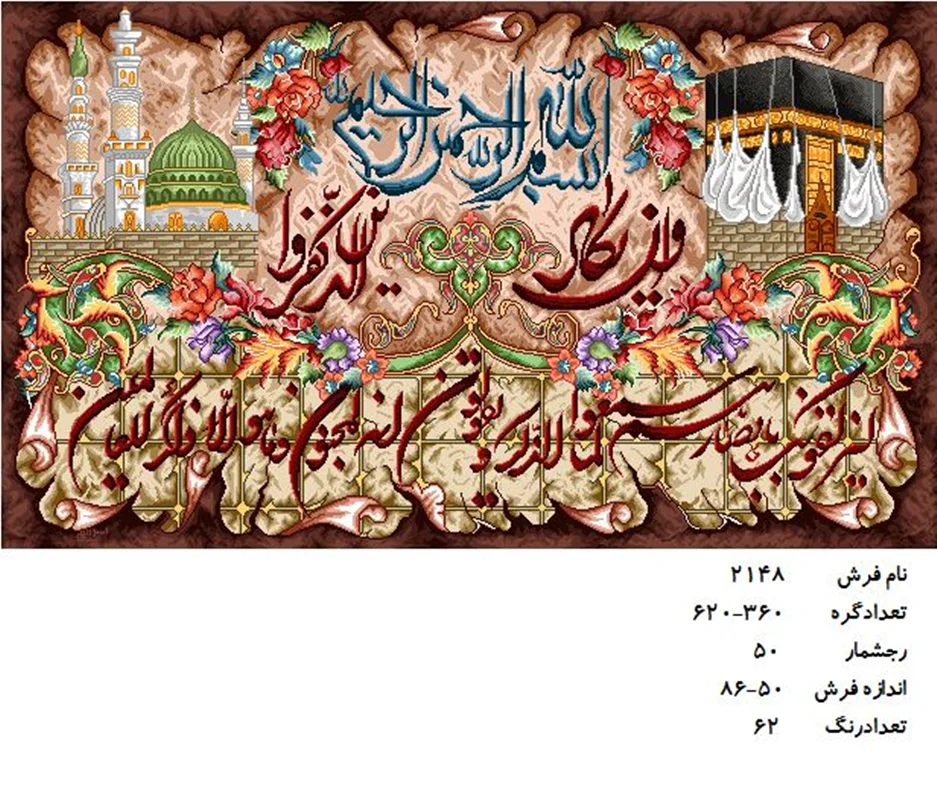 بسم الله الرحمن الرحیم
وان یکاد الذین کفروا
لیزلقونک بابصارهم لما سمعوا الذکر و یقولون انه لمجنون و ما هو الا ذکر للعالمین
نام فرش ۲۱۴۸
تعدادگره ۳۶۰-۶۲۰
رجشمار ۵۰
اندازه فرش ۵۰-۸۶
تعدادرنگ ۶۲